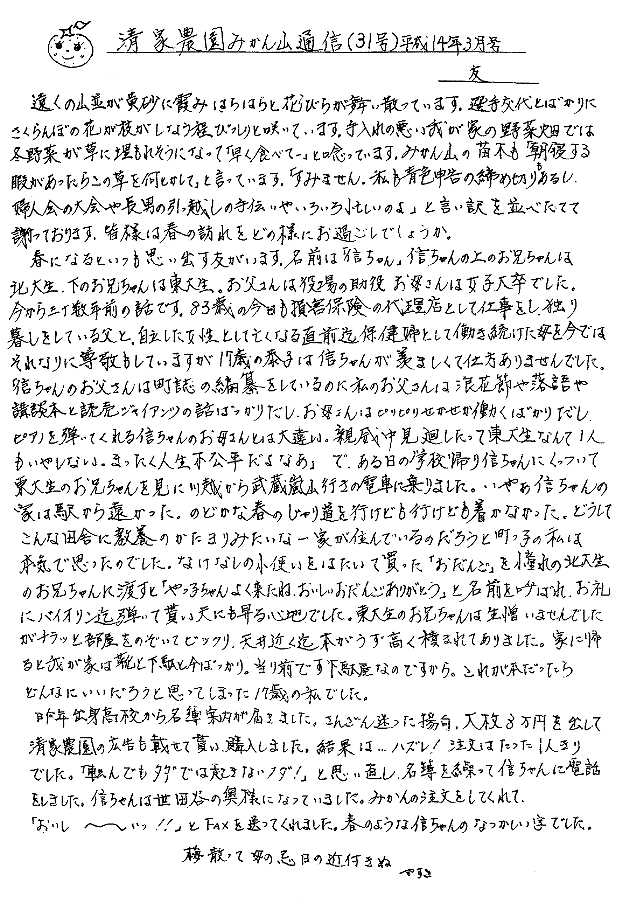 清家農園みかん山通信(31号)平成14年3月号
友
遠くの山並が黄砂に霞みはらはらと花びらが舞い散っています。選手交代とばかりに
さくらんぼの花が枝がしなう程びっしりと咲いています。手入れの悪い我が家の野菜畑では
冬野菜が草に埋もれそうになって「早く食べてー」と唸っています。みかん山の苗木も「朝寝する
暇があったらこの草を何とかして」と言っています。「すみません。私も青色申告の締め切りもあるし、
婦人会の大会や長男の引っ越しの手伝いやいろいろ忙しいのよ」と言い訳を並べたてて
謝っております。皆様は春の訪れをどの様にお過ごしでしょうか。
春になるといつも思い出す友がいます。名前は「信ちゃん」信ちゃんの上のお兄ちゃんは
北大生、下のお兄ちゃんは東大生。お父さんは役場の助役 お母さんは女子大卒でした。
今から三十数年前の話です。83歳の今日も損害保険の代理店として仕事をし、独り
暮しをしている父と、自立した女性として亡くなる直前迄保健婦として働き続けた母を今では
それなりに尊敬もしていますが17歳の恭子は信ちゃんが羨ましくて仕方ありませんでした。
「信ちゃんのお父さんは町誌の編纂をしているのに私のお父さんは浪花節や落語や
講談本と読売ジャイアンツの話ばっかりだし、お母さんはピリピリせかせか働くばかりだし
ピアノを弾いてくれる信ちゃんのお母さんとは大違い。親戚中見廻したって東大生なんて1人
もいやしない。まったく人生不公平だよなあ」で、ある日の学校帰り信ちゃんにくっついて
東大生のお兄ちゃんを見に川越から武蔵嵐山行きの電車に乗りました。いやぁ信ちゃんの
家は駅から遠かった。のどかな春のじゃり道を行けども行けども着かなかった。どうして
こんな田舎に教養のかたまりみたいな一家が住んでいるのだろうと町っ子の私は
本気で思ったのでした。なけなしの小使いをはたいて買った「おだんご」を憧れの北大生
のお兄ちゃんに渡すと「やっ子ちゃんよく来たね。おいしいおだんごありがとう」と名前を呼ばれ、お礼
にバイオリン迄弾いて貰い天にも昇る心地でした。東大生のお兄ちゃんは生憎いませんでした
がチラッと部屋をのぞいてビックリ、天井近く迄本がうず高く積まれてありました。家に帰
ると我が家は靴と下駄と傘ばっかり。当り前です下駄屋なのですから。これが本だったら
どんなにいいだろうと思ってしまった17歳の私でした。
昨年出身高校から名簿案内が届きました。さんざん迷った揚句、大枚3万円を出して
清家農園の広告も載せて貰い、購入しました。結果は…ハズレ!注文はたった1人きり
でした。「転んでもタダでは起きないゾダ!」と思い直し、名簿を繰って信ちゃんに電話
をしました。信ちゃんは世田谷の奥様になっていました。みかんの注文をしてくれて、
「おいし 〜〜いっ!!」とFAXを送ってくれました。春のような信ちゃんのなつかしい字でした。
梅散って母の忌日の近付きぬ
やすこ